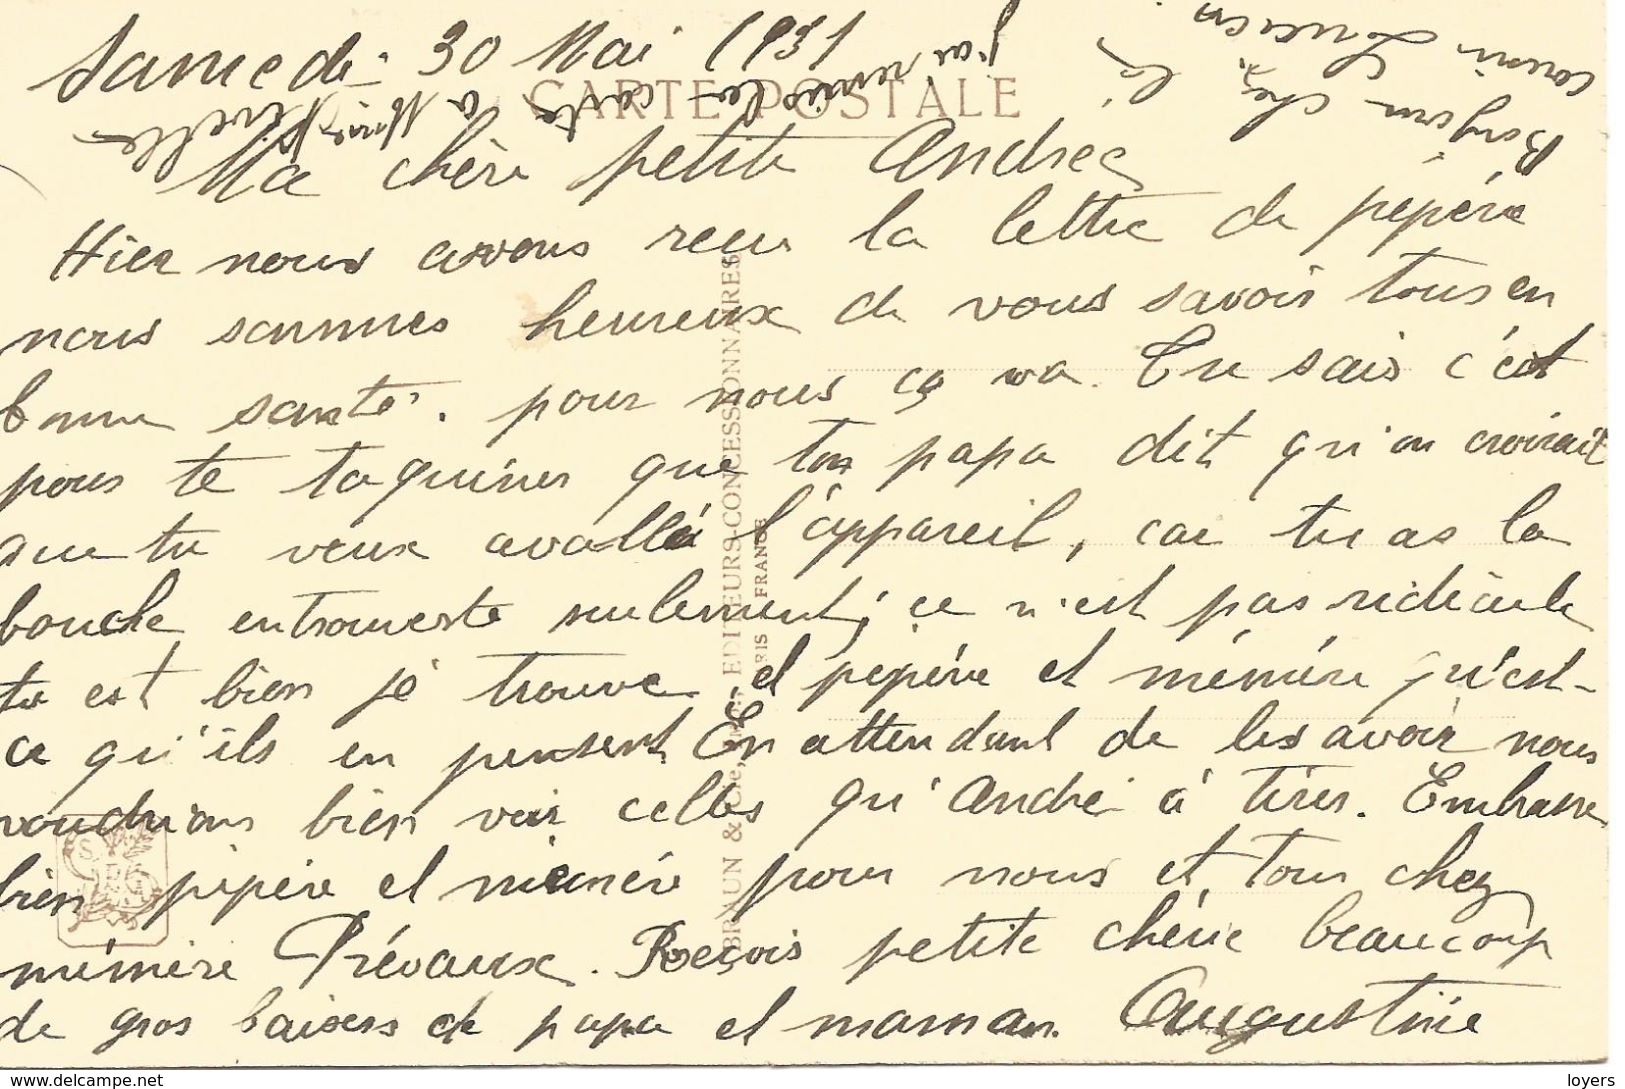 Samedi 30 Mai 1931
CARTE POSTALE
j'ai remis la carte
à Mme
Bonjour chez
cousin Lucien
Ma chère petite Andrée
Hier nous avons reçu la lettre de pépère
nous sommes heureux de vous savoir tous en
bonne santé. pour nous ça va. Tu sais c'est
pour te taquiner que ton papa dit qu'on croirait
que tu veux avallé l'appareil, car tu as la
bouche entrouverte seulement; ce n'est pas ridicule
tu est bien je trouve, et pépère et mémère qu'est-
ce qu'ils en pensent. En attendant de les avoir nous
voudrions bien voir celles qu'André à tirer. Embrasse
bien pépère et mémère pour nous et tous chez
mémère Prévaux. Reçois petite chérie beaucoup
de gros baisers de papa et maman. Augustine
BRAUN & Cie, EDITEURS-CONCESSIONNAIRES
PARIS FRANCE
loyers